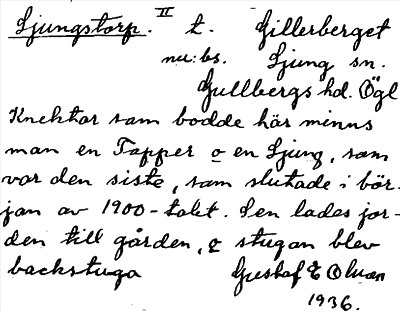 Ljungstorp. II t. Gillerberget
nu: bs. Ljung sn.
Gullbergs hd. Ögl
Knektar som bodde här minns
man en Tapper o en Ljung, som
var den siste, som slutade i bör-
jan av 1900-talet. Sen lades jor-
den till gården, & stugan blev
backstuga Gustaf E Olsson
1936.